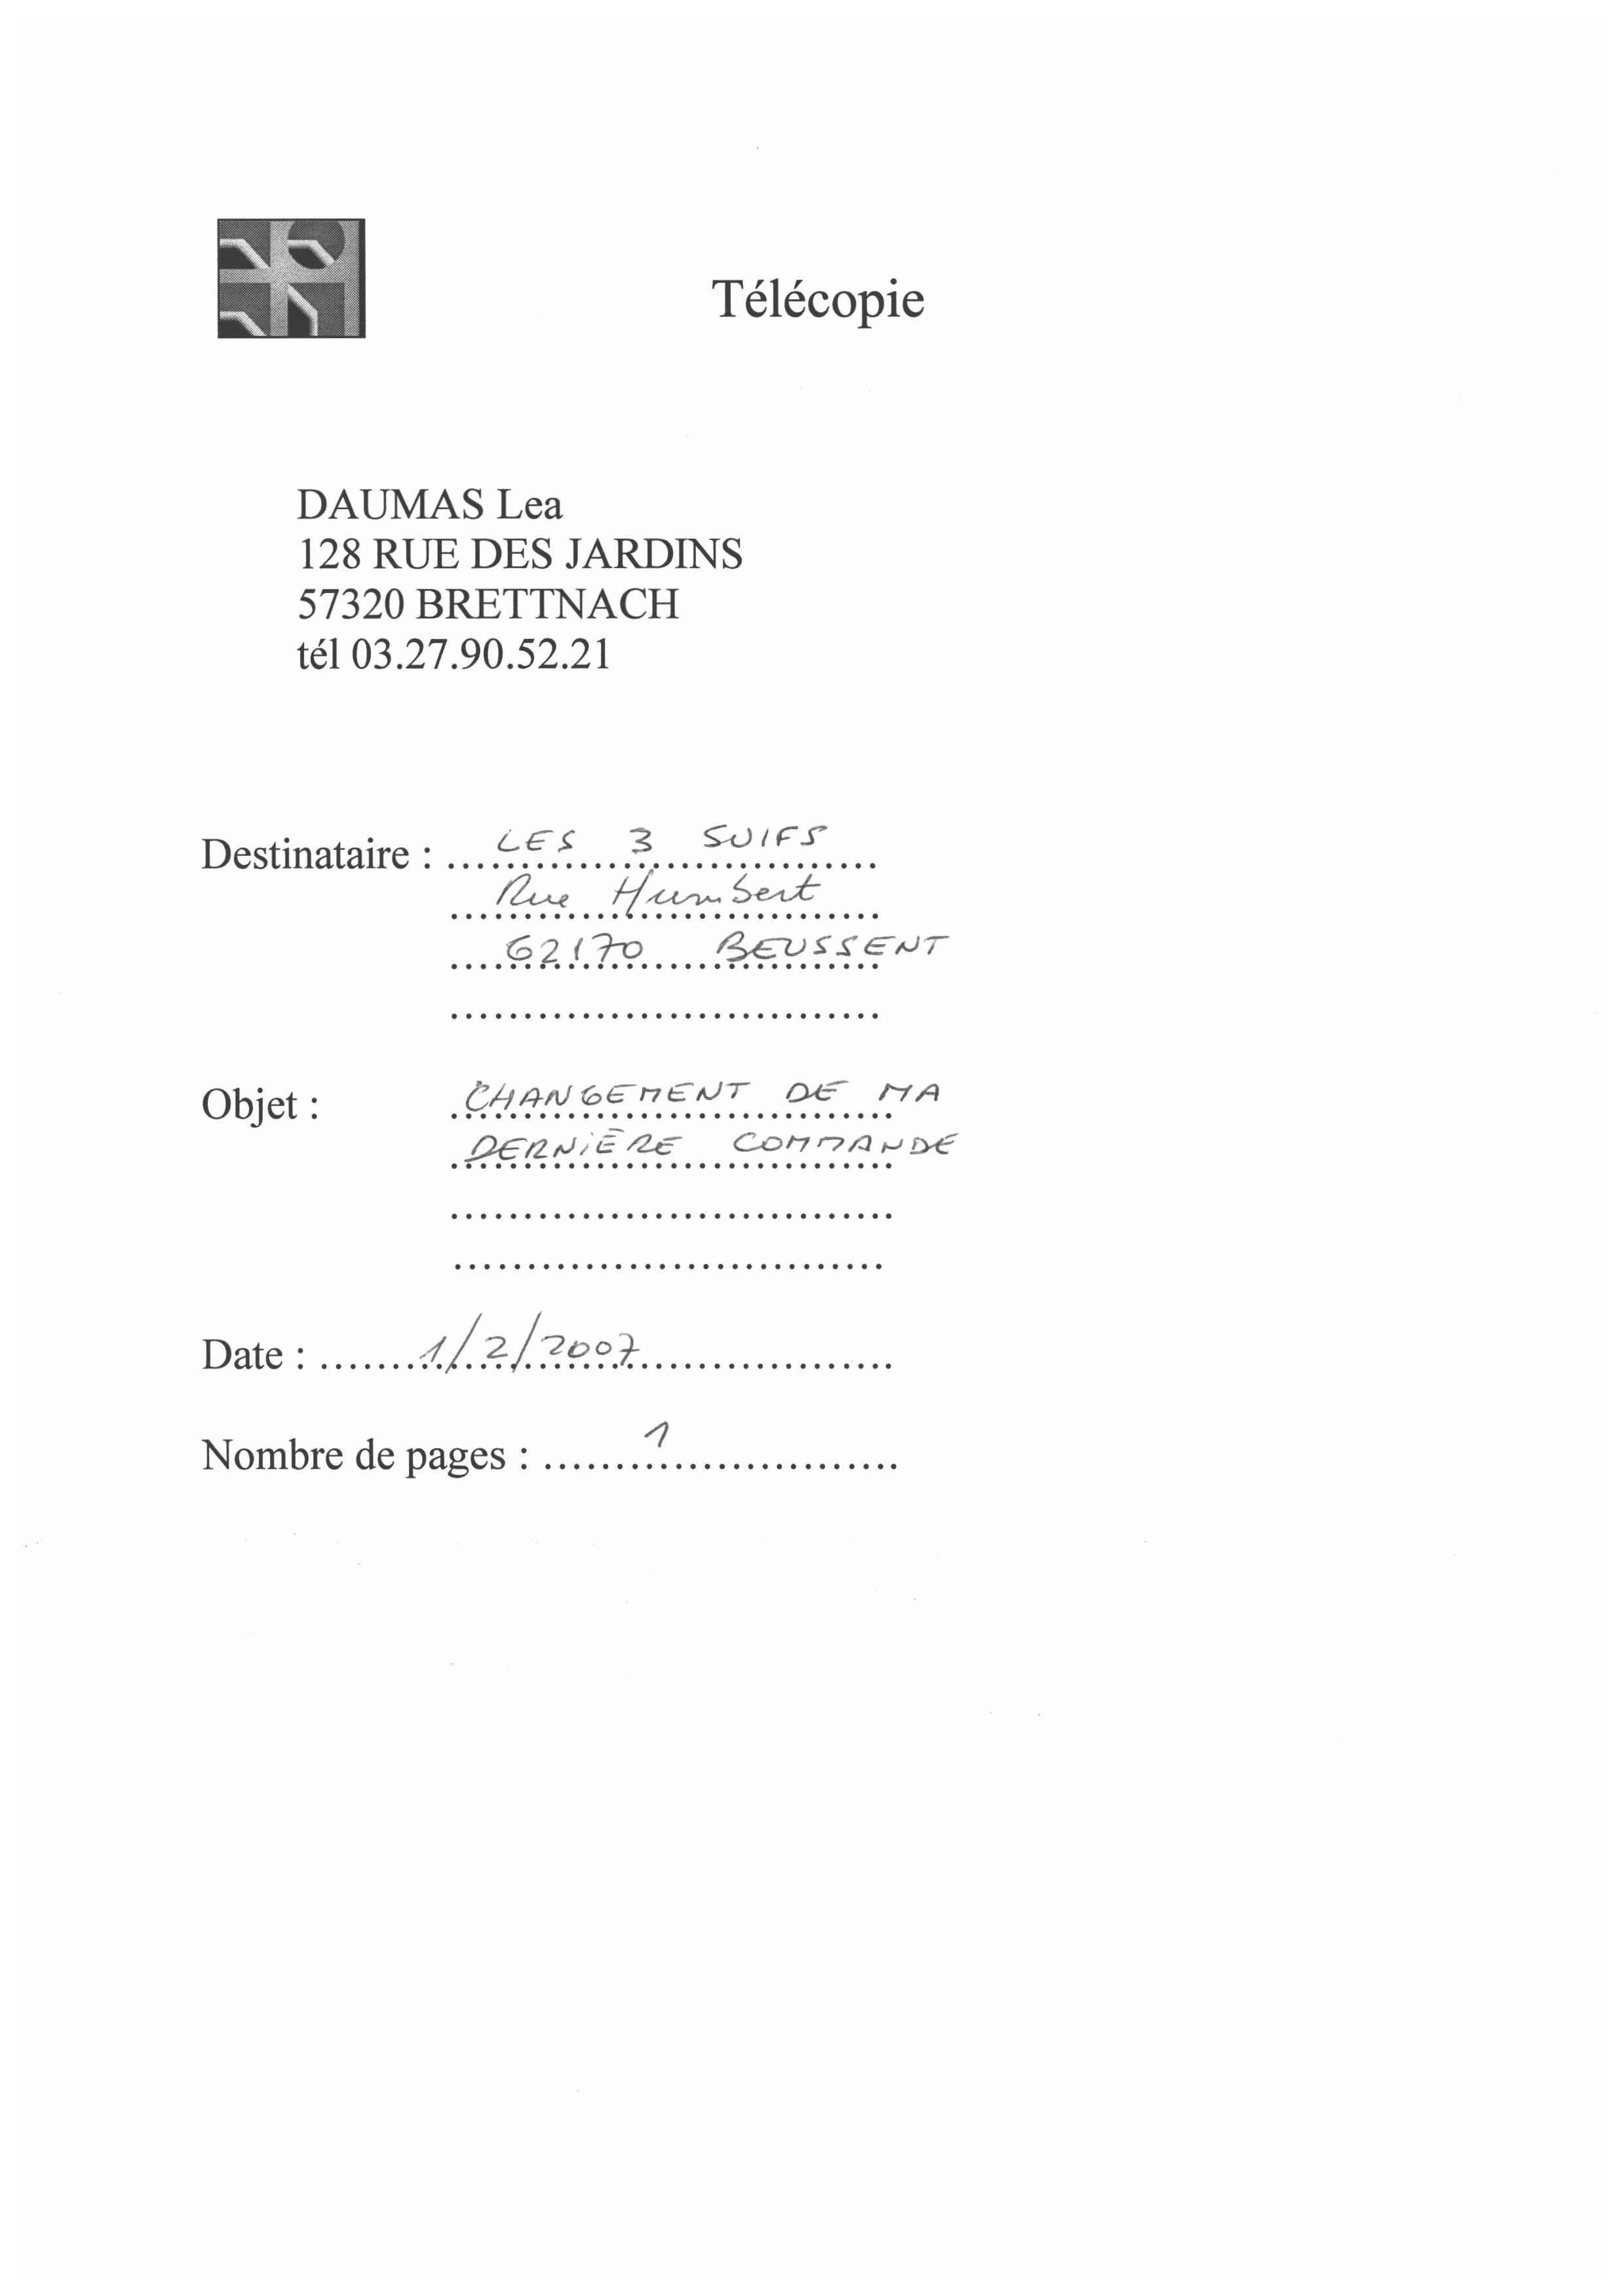 Télécopie
DAUMAS Lea
128 RUE DES JARDINS
57320 BRETTNACH
tél 03.27.90.52.21
Destinataire : LES 3 SUIFS
Rue Humbert
62170 BEUSSENT
Objet : CHANGEMENT DE MA
DERNIÈRE COMMANDE
Date : 1/2/2007
Nombre de pages : 1